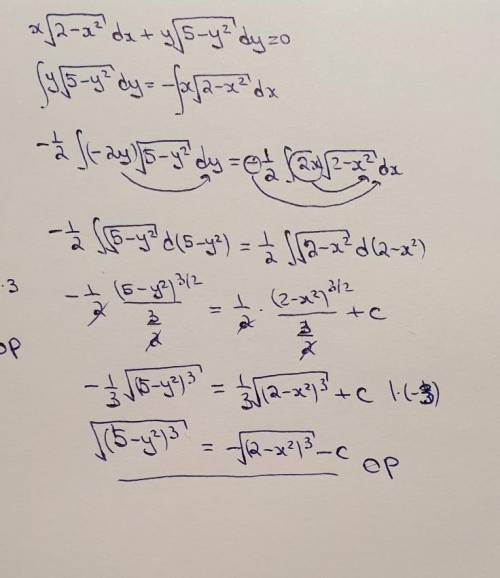 x√(2-x²) dx + y√(5-y²) dy=0
∫y√(5-y²) dy = -∫x√(2-x²) dx
-1/2 ∫(-2y)√(5-y²) dy = -1/2 ∫2x√(2-x²) dx
-1/2 ∫√(5-y²) d(5-y²) = 1/2 ∫√(2-x²) d(2-x²)
·3
-1/2 (5-y²)^(3/2)/(3/2) = 1/2 · (2-x²)^(3/2)/(3/2) + C
OP
-1/3 √((5-y²)³) = 1/3 √((2-x²)³) + C |·(-3)
√((5-y²)³) = -√((2-x²)³) - C OP